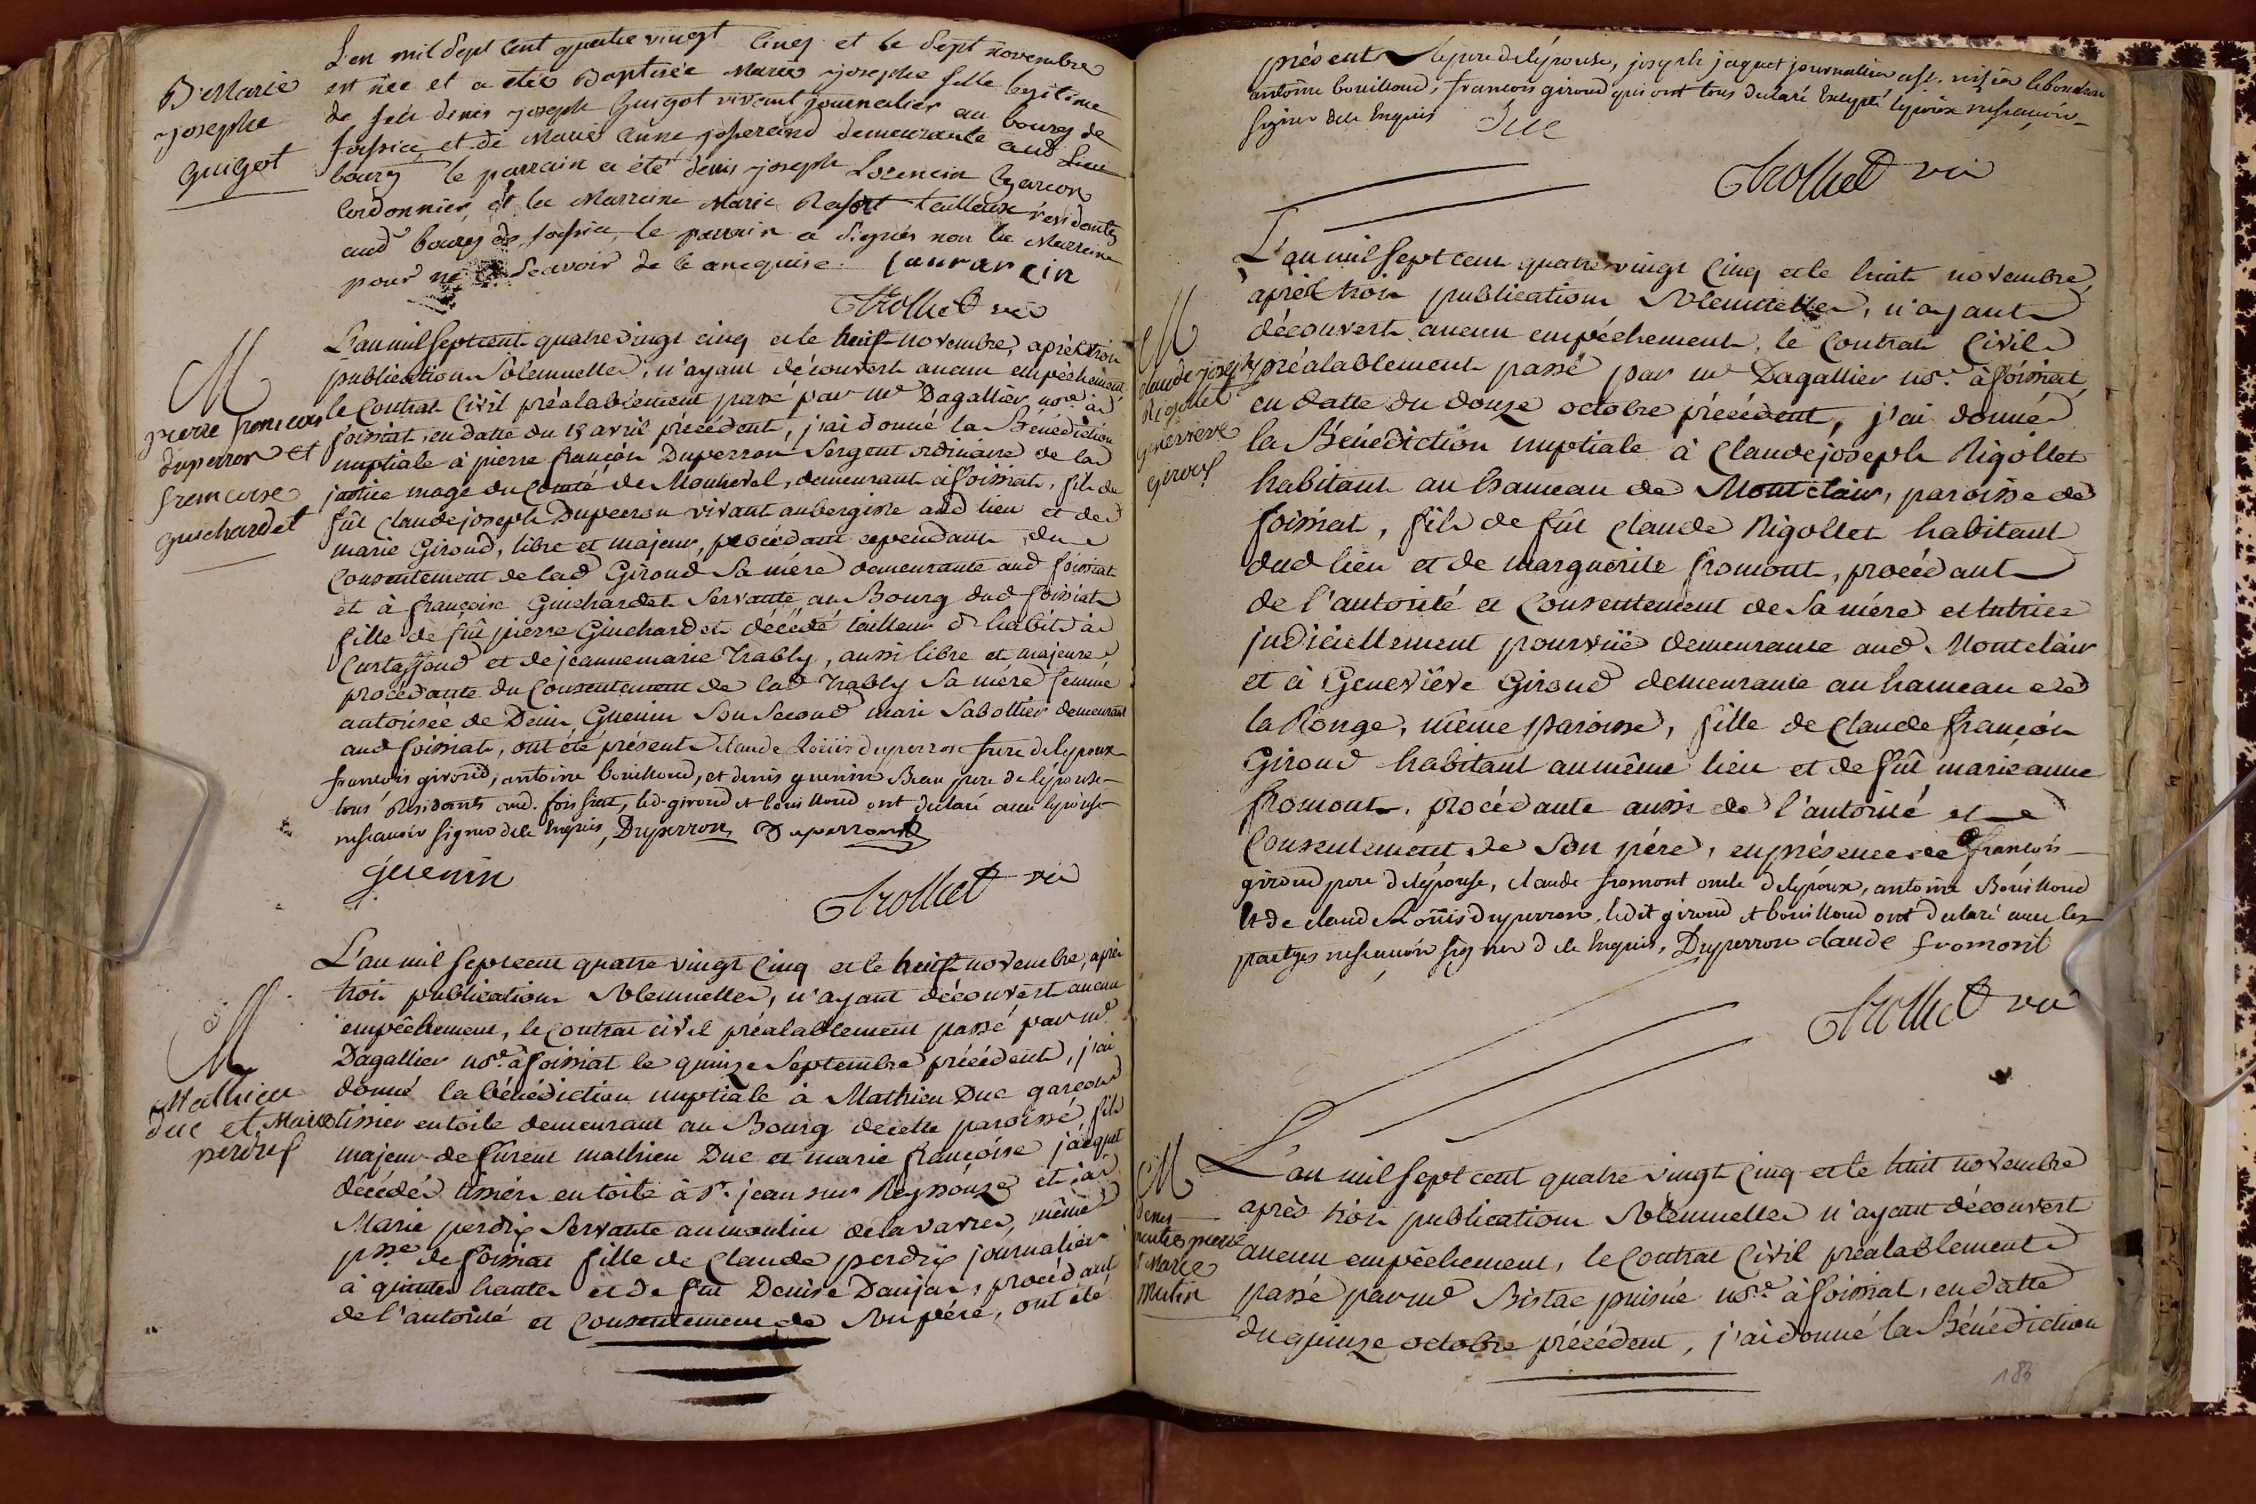 B. Marie
josephe
guigot
L'en mil sept cent quatre vingt cinq et le sept novembre
est née et a etée Baptisée Marie josephe fille legitime
de feu denis joseph Guigot vivant journalier au bourg de
foissia et de Marie Anne josserand demeurante aud lieu
bourg le parrain a été denis joseph Lorencin Garçon
Cordonnier et la Marreine Marie tailleuse residants
aud bourg de foissia, le parrain a signés non la Marreine
pour ne Scavoir de ce anequise. Laurancin
Trolliet vic
M
pierre francois
duperron et
francoise
guichardet
L'an mil sept cent quatre vingt cinq et le huit novembre, après trois
publications Solemnelles, n'ayant découvert aucun empêchement,
le Contrat Civil préalablement passé par me Dagallier nore à
foissiat, en datte du 18 avril précédent, j'ai donné la Bénédiction
nuptiale à pierre françois Duperron Sergent ordinaire de la
justice mage du Comté de Montrevel, demeurant à foissiat, fils de
fût Claude joseph Duperron vivant aubergiste aud lieu et de
marie Giroud, libre et majeur, procédant cependant du
Consentement de lad Giroud Sa mère demeurante aud foissiat
et à françoise Guichardet Servante au Bourg dud foissiat
fille de fût pierre Guichardet décédé tailleur d'habits à
Curtafond et de jeannemarie Trably, aussi libre et majeure
procédante du Consentement de lad Trably Sa mère femme
autorisée de Denis Guenin Son Second mari Sabottier demeurant
aud foissiat, ont été présents Claude Loüis duperron frere de lepoux
francois giroud, antoine bouilloud, et denis guenin Beau pere de l'épouse
tous Residants aud. foissiat, led. giroud et bouilloud ont declaré avec l'epouse
ne scavoir signer de ce Enquis, Duperron Duperron
guenin
Trolliet vic
M
Mathieu
duc et Marie
perdrix
L'an mil sept cent quatre vingt cinq et le huit novembre, après
trois publications Solemnelles, n'ayant découvert aucun
empêchement, le contrat civil préalablement passé par me
Dagallier nore à foissiat le quinze Septembre précédent, j'ai
donné la bénédiction nuptiale à Mathieu Duc garçon
tissier en toile demeurant au Bourg de cette paroisse, fils
majeur de fürent mathieu Duc et marie françoise jacquet
décédés tissiers en toile à St. jean sur Reyssouze et à
Marie perdrix Servante au moulin de la varre, même
psse de foissiat fille de Claude perdrix journalier
à et de fut Denise Danjan, procédant
de l'autorité et Consentement de Son père, ont été
présents Le pere de lépouse, joseph jaquet journalier
antoine bouilloud, francois giroud qui ont tous declaré Excepté lepoux ne scavoir
signer de ce Enquis Duc
Trolliet vic
M
claude joseph
Rigollet
genevieve
giroud
L'an mil sept cent quatre vingt Cinq et le huit novembre,
après trois publications Solemnelles, n'ayant
découvert aucun empêchement, le Contrat Civil
préalablement passé par me Dagallier nore à foissiat,
en datte du douze octobre précédent, j'ai donné
la Bénédiction nuptiale à Claude joseph Rigollet
habitant au hameau de Montclair, paroisse de
foissiat, fils de fût Claude Rigollet habitant
dud lieu et de marguerite fromont, procédant
de l'autorité et Consentement de Sa mère et tutrice
judiciellement pourvüe demeurante aud. Montclair
et à Geneviève Giroud demeurante au hameau de
la Ronge, même paroisse, fille de Claude françois
Giroud habitant au même lieu et de fût marie anne
fromont, procédante aussi de l'autorité et
Consentement de Son père, en présence de francois
giroud pere de lépouse, claude fromont oncle de lépoux, antoine Bouilloud
et de claude Loüis duperron, ledit giroud et bouilloud ont declaré avec les
partyes ne scavoir signer de ce Enquis, Duperron claude fromont
Trolliet vic
M
denis
pierre
et Marie
Mutin
L'an mil sept cent quatre vingt cinq et le huit novembre
après trois publications Solemnelles n'ayant découvert
aucun empêchement, le Contrat Civil préalablement
passé par me Bistac puisné nore à foissiat, en datte
du quinze octobre précédent, j'ai donné la Bénédiction